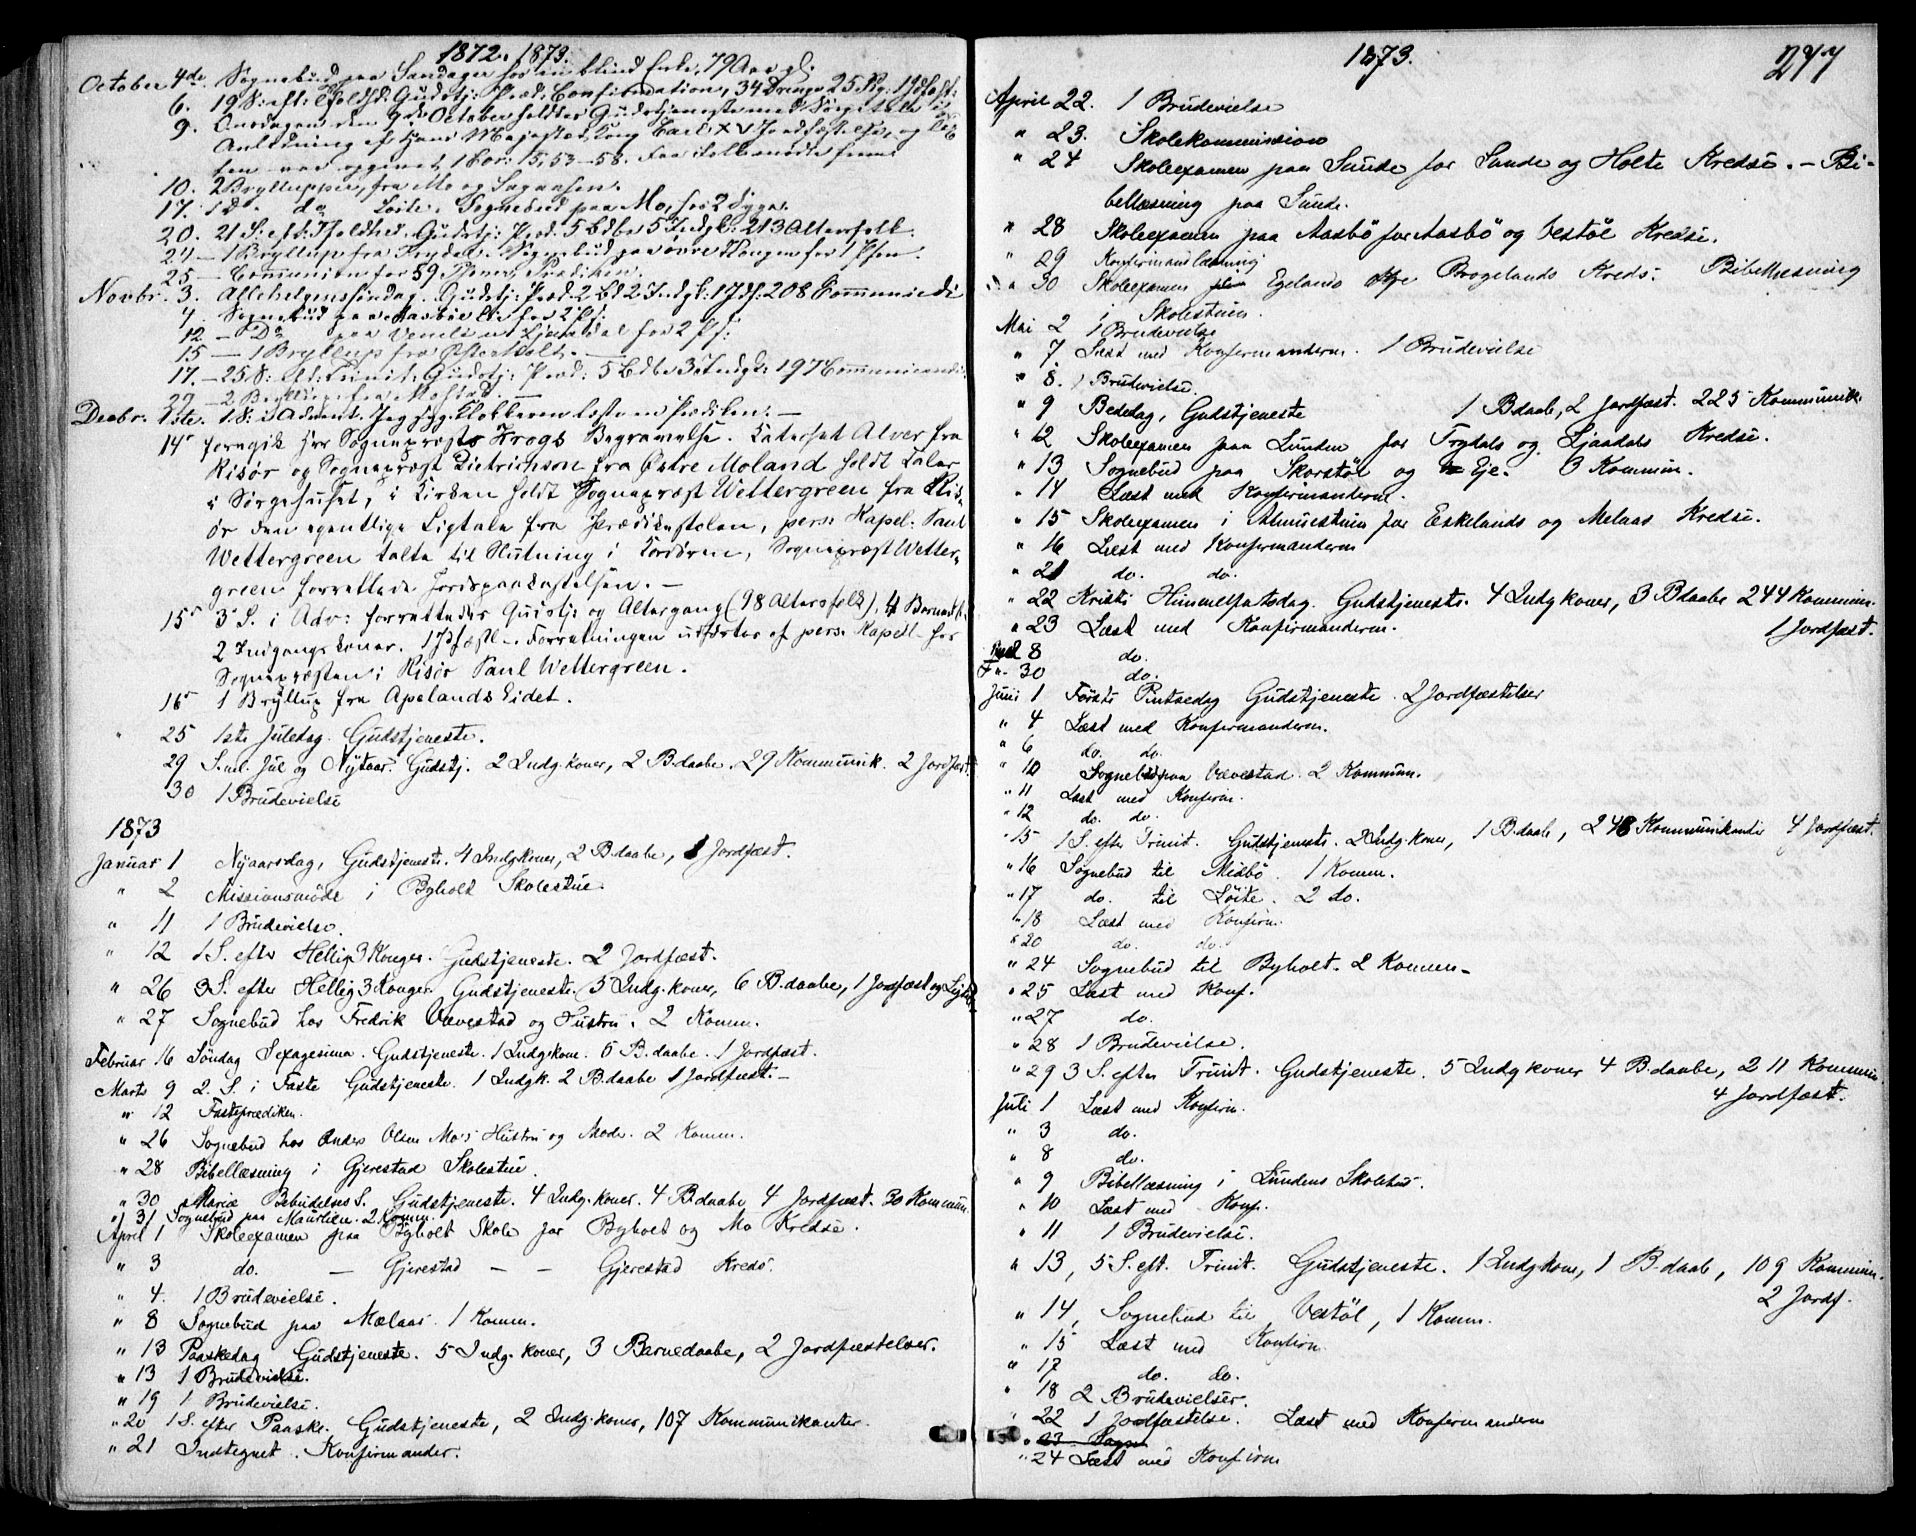 1872. 1873.
October 4de. Sognebud paa Sandager hos en blind Enke, 79 Aar gl.
6. 19 S: eft: Gudstj: Præd: Confirmation, 34 Drenge 25 Pig:
9. Onsdagen den 9de October holdtes Gudstjeneste med Sørgetale i
Anledning af Hans Majestæt Kong Carl XV Jordfæstelse, og
1 Cor: 15, 53-58.
10. 2 Brylluper, fra Mo og
17. 1 Do. do Löite. Sognebud paa Mo, hos 2 Syge.
20. 21 S: eft: Gudstj: Præd: 5 Bdb 5 Indgk: 213 Altersfolk.
24 - 1 Bryllup fra Sognebud paa øvre for 1 Psen.
25 - Communion for 59 Prædiken.
Novbr. 3. Allehelgensöndag. Gudstj: Præd. 2 Bd 2 Indgk: 1 Jdf: 208 Communic
4. Sognebud paa for 2 Ps:
12 - Do paa hos 2 Ps:
15 - 1 Bryllup fra Østerholt. -
17. - 25 S: eft: Trinit: Gudstj: Præd: 5 Bdb 3 Indgk: 197 Communicanter
22 - 2 Bryllup fra
Decbr. 1ste. 1 S: i Advent. Jeg syg. Klokkeren læste en Prædiken. -
14 foregik Hr Sognepræst Krogs Begravelse. Katechet Alver fra
Risör og Sognepræst Dietrichson fra Østre Moland holdt Taler
i Sörgehuset, i Kirken holdt Sognepræst Wettergreen fra Ris-
ör den egentlige Ligtale fra Prædikestolen, pers: Kapel: Paul
Wettergreen talte til Slutning i Sognepræst Wetter-
green forrettede Jordspaakastelsen. -
15 3 S. i Adv: forrettedes Gudstj: og Altergang (98 Altersfolk), 4 Barnedb.
2 Indgangskoner. 1 Jdfæst - Forretningen udfört af pers: Kapell. hos
Sognepræsten i Risör Paul Wettergreen.
16 1 Bryllup fra Apelands Eidet.
" 25 1ste Juledag. Gudstjeneste.
29 S. ml. Jul og Nytaar. Gudstj. 2 Indg. koner, 2 B.daabe. 29 Kommunik. 2 Jordfæst.
30 1 Brudevielse
1873
Januar 1 Nyaarsdag, Gudstjeneste. 4 Indg. koner, 2 B.daabe, 1 Jordfæst.
" 2 Missionsmöde i Byholt Skolestue.
" 11 1 Brudevielse.
" 12 1 S. efter Hellig 3 Konger. Gudstjeneste. 2 Jordfæst.
" 26 3 S. efter Hellig 3 Konger. Gudstjeneste. 5 Indg. koner, 6 B.daabe, 1 Jordfæst og
" 27 Sognebud hos Fredrik Vævestad og Hustru. 2 Komm.
Februar 16 Söndag Sexagesima. Gudstjeneste. 1 Indg.kone. 6 B.daabe. 1 Jordfæst.
Marts 9 2. S. i Faste Gudstjeneste. 1 Indgk. 2 B.daabe 1 Jordfæst. -
" 12 Fasteprædiken.
" 26 Sognebud hos Anders Olsen Mo's Hustru og Moder. 2 Komm.
" 28 Bibellæsning i Gjerestad Skolestue.
" 30 Mariæ Bebudelses S. Gudstjeneste. 4 Indg. koner. 4 B.daabe 4 Jordfæst. 30 Kommun.
" 31 Sognebud paa 2 Komm.
April 1 Skoleexamen paa Byholt Skole for Byholt og Mo Kredse.
" 3 do. - Gjerestad - - Gjerestad Kreds.
" 4. 1 Brudevielse.
" 8 Sognebud paa Mælaas. 1 Komm.
" 13 Paaskedag Gudstjeneste. 5 Indg. koner, 3 Barnedaabe, 2 Jordfæstelser.
" 13 1 Brudevielse.
" 19 1 Brudevielse.
" 20 1 S. efter Paaske. Gudstjeneste, 2 Indg. koner, 107 Kommunikanter.
" 21 Indtegnet Konfirmander.
1873. 277
April 22. 1 Brudevielse
" 23. Skolekommission
" 24 Skoleexamen paa Sunde for Sunde og Holte Kredse. - Bi-
bellæsning paa Sunde.
" 28 Skoleexamen paa Aasbö for Aasbö og Vestöl Kredse.
" 29 Konfirmandlæsning
" 30 Skoleexamen Egelands Brogelands Kreds. Bibellæsning
i Skolestuen.
Mai 2 1 Brudevielse
" 7 Læst med Konfirmanderne. 1 Brudevielse
" 8. 1 Brudevielse.
" 9 Bededag, Gudstjeneste 1 B.daab, 2 Jordfæst. 225 Kommunik.
" 12 Skoleexamen paa Lunden for Trydals og Ljaadals Kredse.
" 13 Sognebud paa Skorstöl og Eje. 3 Kommun.
" 14 Læst med Konfirmanderne.
" 15 Skoleexamen i Almuestuen for Eskelands og Melaas Kredse.
" 16 Læst med Konfirmanderne
" 21 do. do.
" 22 Kristi Himmelfartsdag. Gudstjeneste. 4 Indg koner, 3 B.daabe 244 Kommun.
" 23 Læst med Konfirmanderne. 1 Jordfæst.
28 do.
" 30 do.
Juni 1 Förste Pintsedag Gudstjeneste. 2 Jordfæstelser
" 4 Læst med Konfirmanderne.
" 6 do. do.
" 10 Sognebud paa Vævestad. 2 Kommun.
" 11 Læst med Konfirm.
" 12 do. do.
" 15 1 S. efter Trinit. Gudstjeneste. 2 Indg. koner, 1 B.daab, 248 Kommunikanter 4 Jordfæst.
" 16 Sognebud til Midbö. 1 Komm.
" 17 do. til Löite. 2 do.
" 18 Læst med Konfirm.
" 20 do. do.
" 24 Sognebud til Byholt. 2 Komm.
" 25 Læst med Konf.
" 27 do.
" 28 1 Brudevielse.
" 29 3 S. efter Trinit. Gudstjeneste. 5 Indg koner 4 B.daabe, 211 Kommun.
4 Jordfæst.
Juli 1 Læst med Konfirm.
" 3 do.
" 8 do.
" 9 Bibellæsning i Lundens Skolehus.
" 10 Læst med Konf.
" 11 1 Brudevielse.
" 13, 5 S. eft. Trinit. Gudstjeneste. 1 Indg kone, 1 B.daab, 109 Kommun.
2 Jordf.
" 14, Sognebud til Vestöl, 1 Komm.
" 15 Læst med Konfirm
" 17 do. do.
" 18 2 Brudevielser.
" 22 1 Jordfæstelse. Læst med Konfirmanderne
" 23 Sogne
" 24 Læst med Konfirm